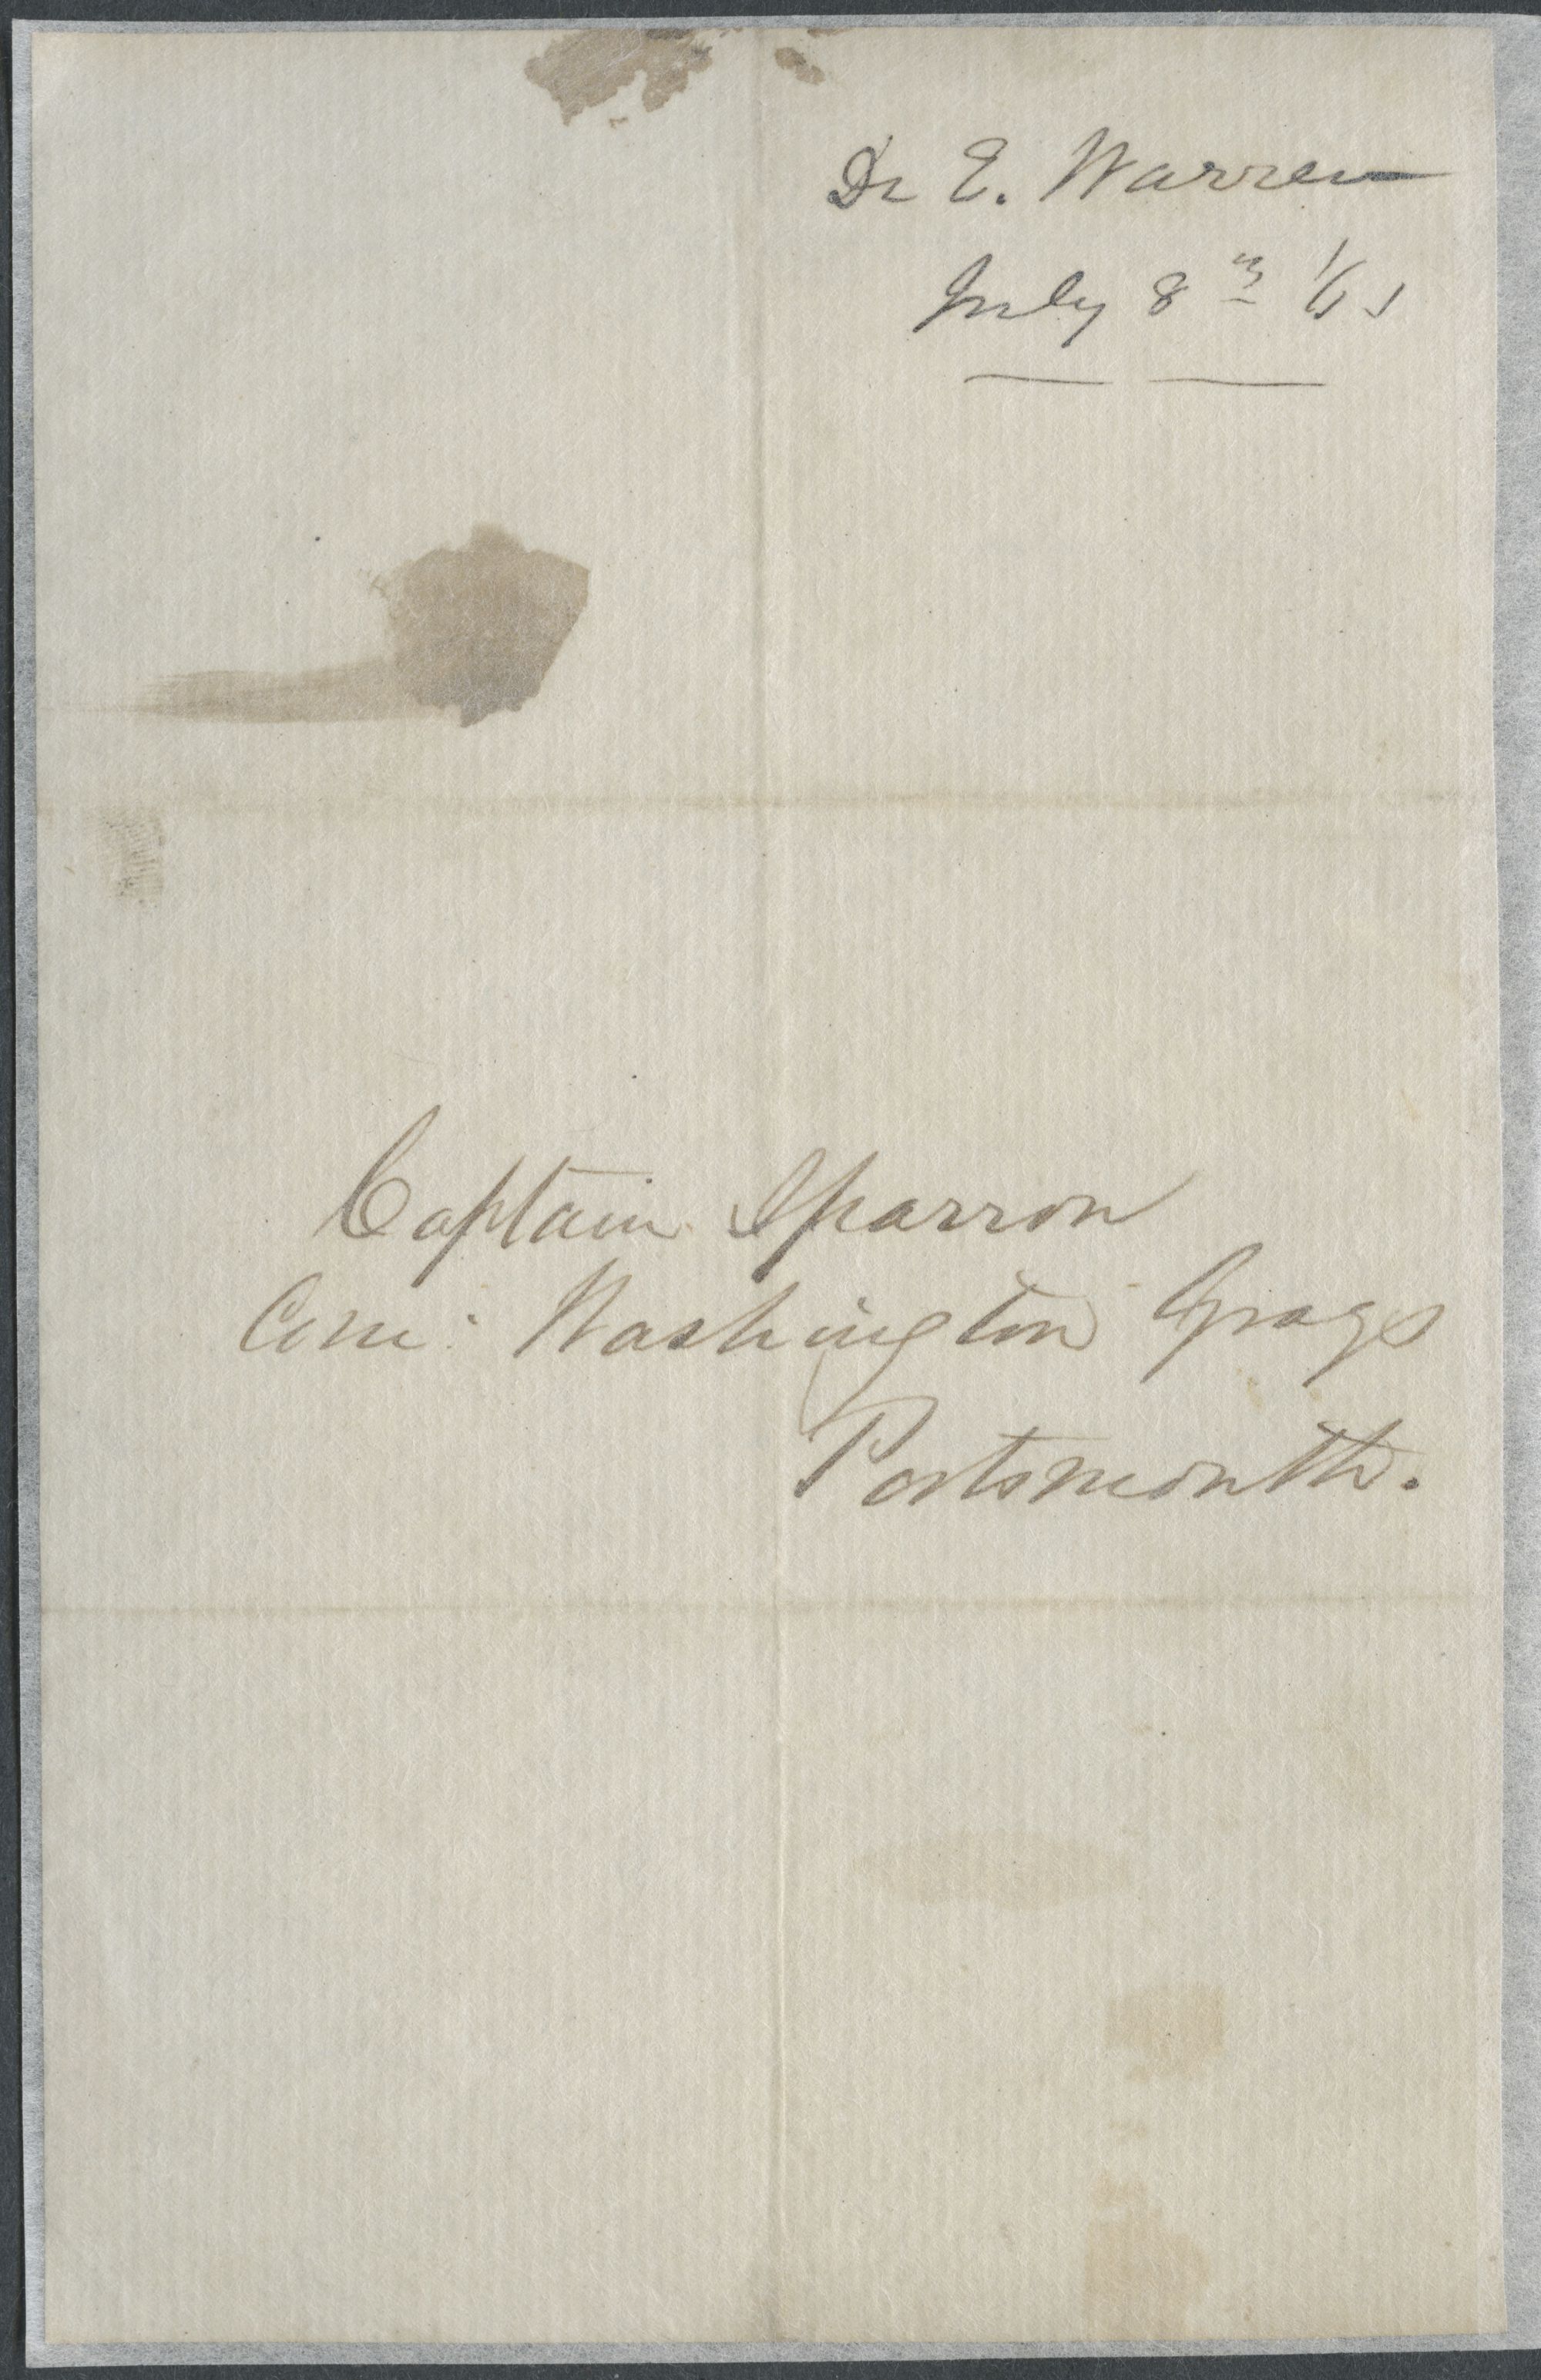 Dr E. Warren
July 8th /61
Captain Sparrow
Com: Washington Grays
Portsmouth.